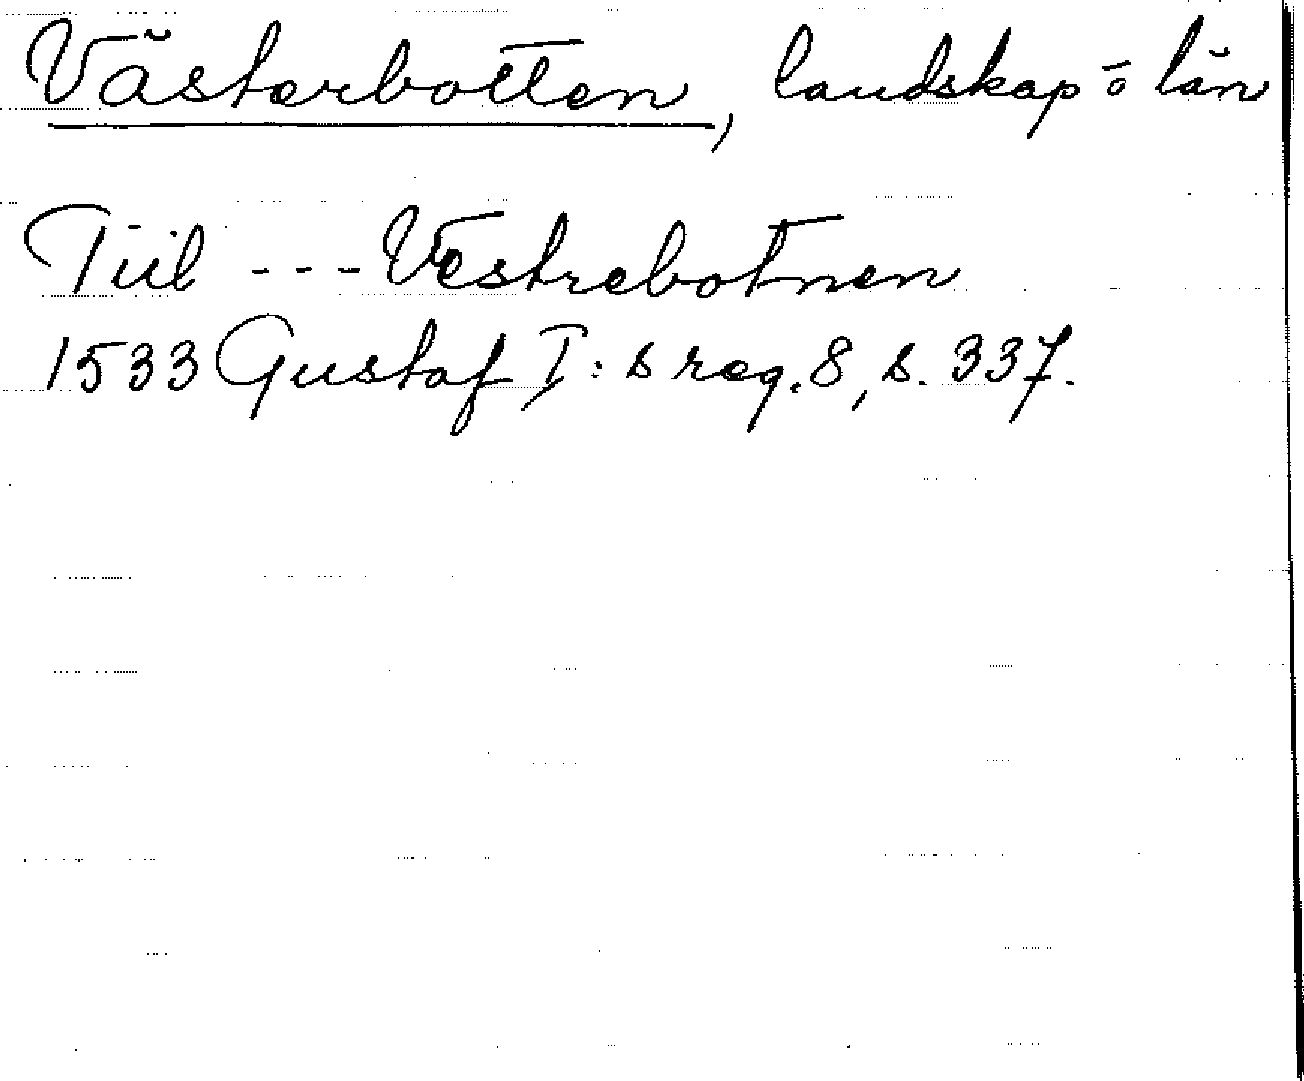 Västerbotten, landskap o län
Tiil --- Vestrebotnen
1533 Gustaf I:s reg. 8, s. 337.